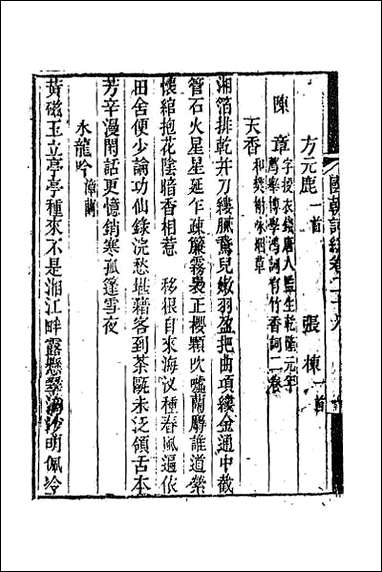 國朝詞綜卷二十
方元鹿一首 張棟一首
陳章字授衣錢唐人監生乾隆元年薦舉博學鴻詞有竹香詞二卷
天香和樊榭咏烟草
湘箔排乾并刀縷膩鵞兒嫩羽盈把曲項鏤金通中截
管石火星星延乍疎簾霧裊正櫻顆吹噓蘭麝誰道縈
懷綰抱花陰暗香相惹 移根自來海汊種春風遍依
田舍便少論功仙錄浣愁堪藉客到茶甌未泛領舌本
芳辛漫閒話更憶銷寒孤篷雪夜
水龍吟漳蘭
黃磁玉立亭亭種來不是湘江畔露懸翠滴沙明佩冷